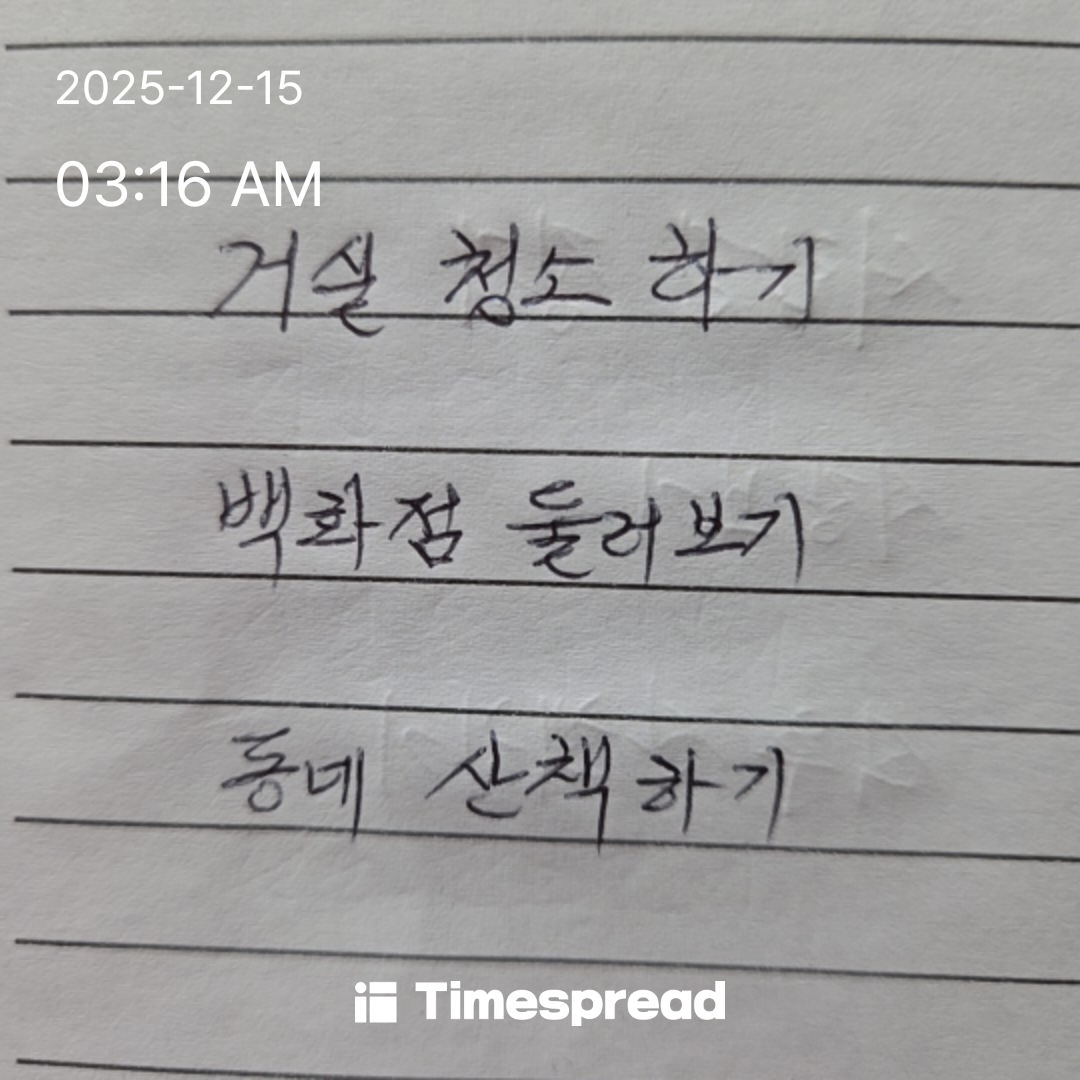 2025-12-15
03:16 AM
거실 청소 하기
백화점 둘러보기
동네 산책하기
Timespread